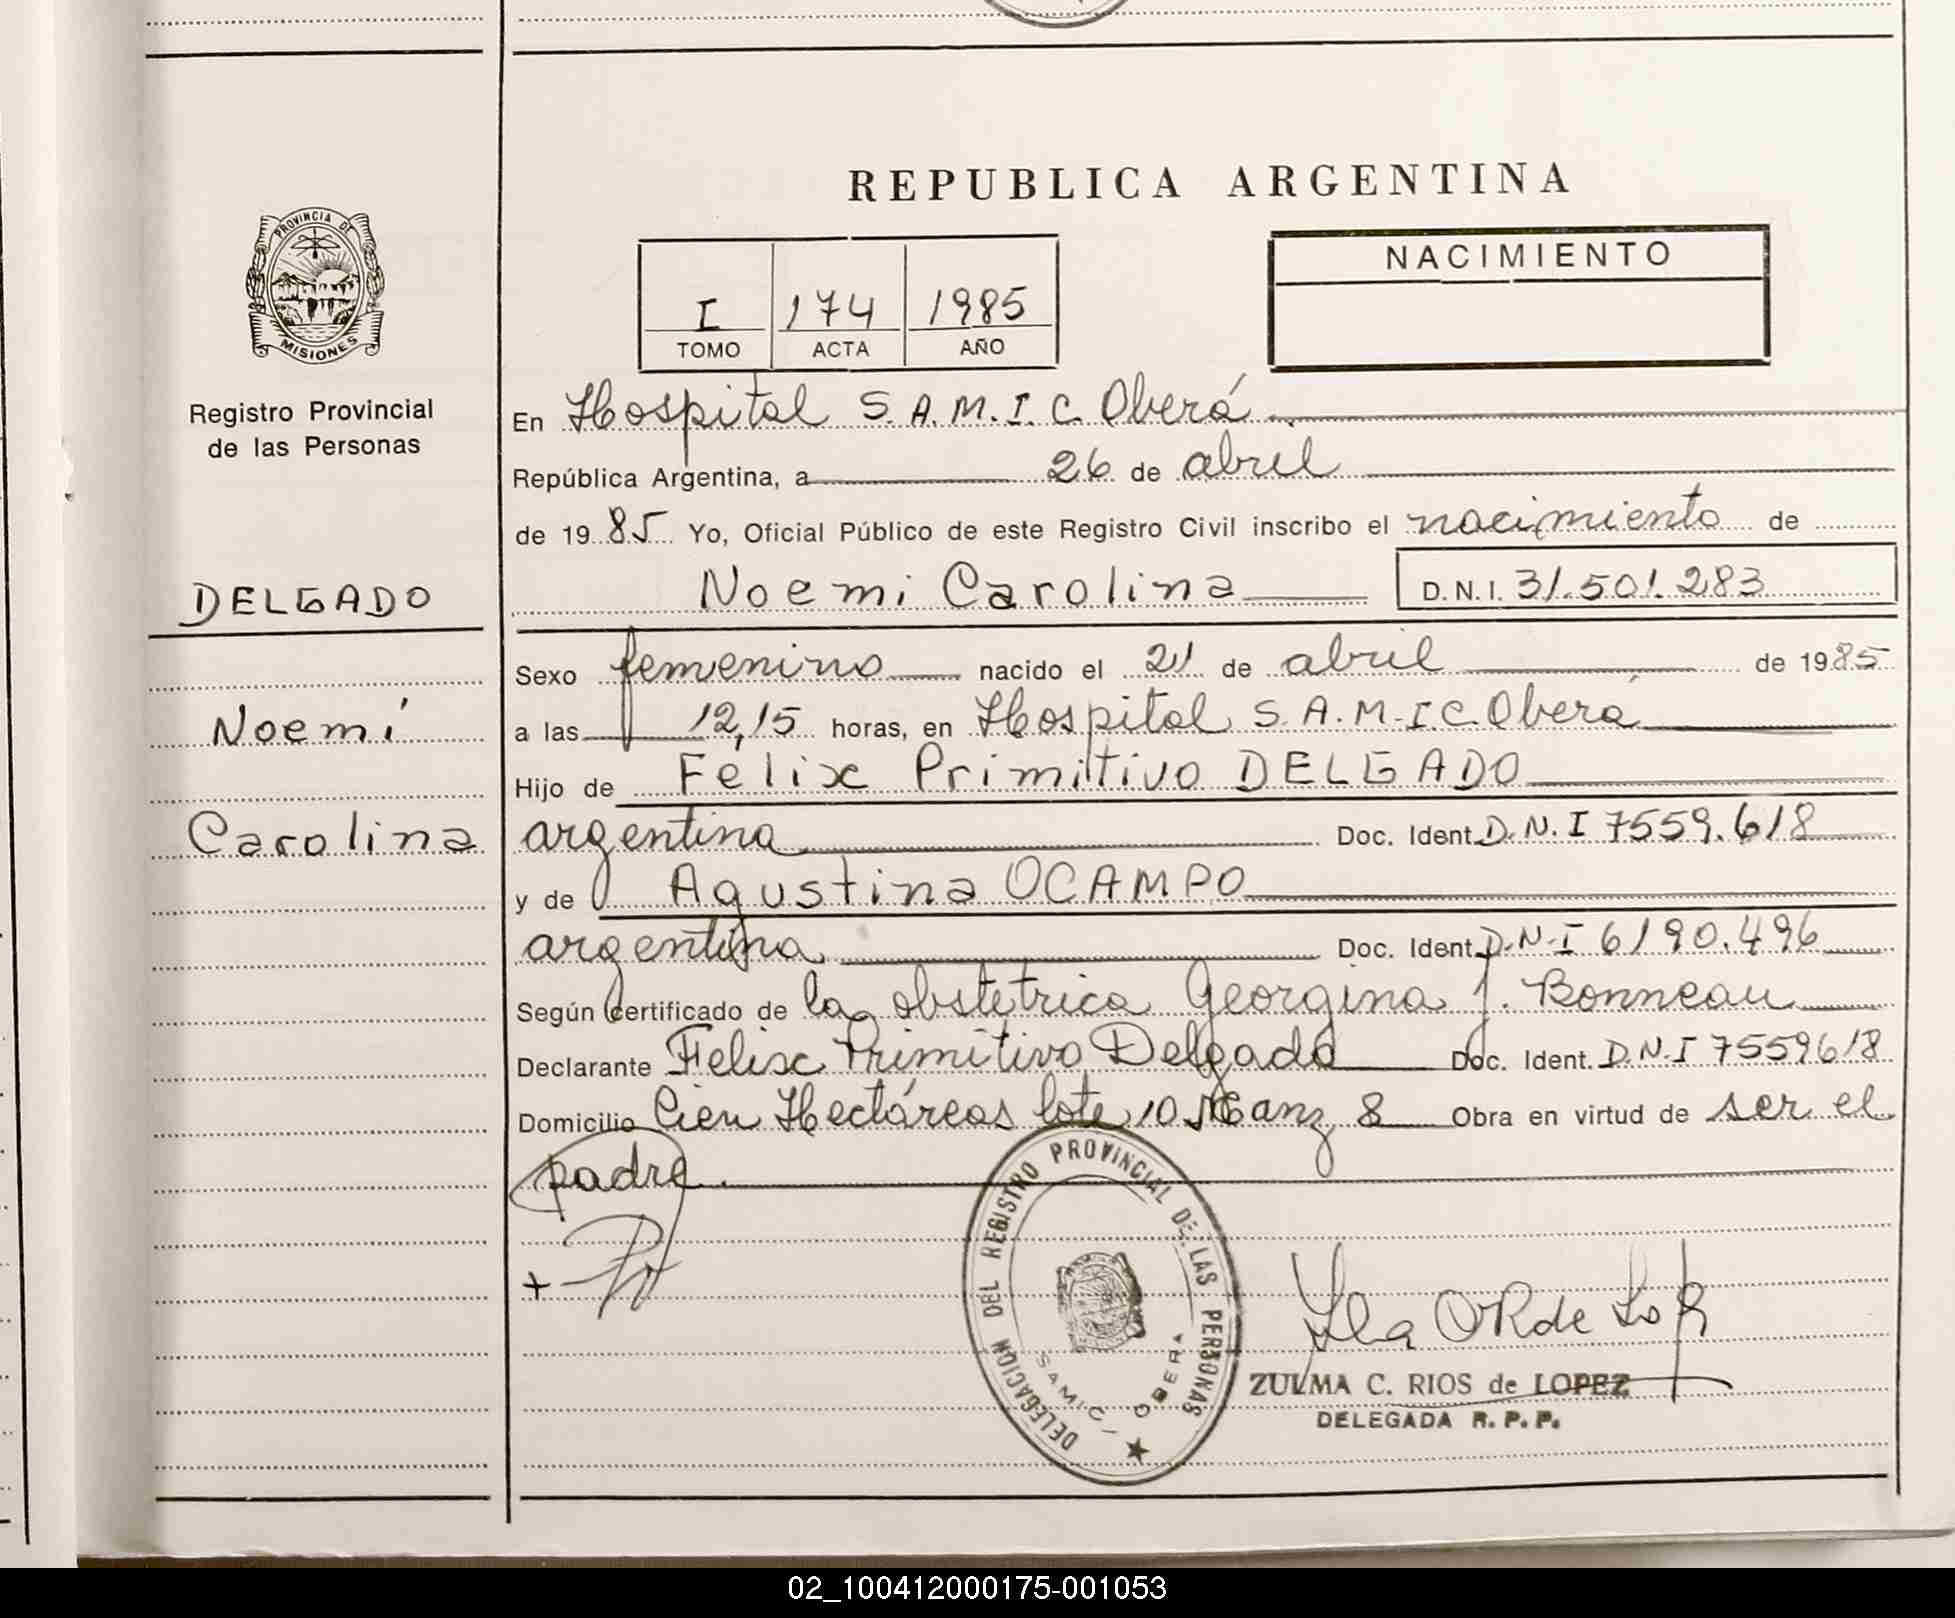 REPUBLICA ARGENTINA
PROVINCIA DE
MISIONES
Registro Provincial
de las Personas
DELGADO
Noemí
Carolina
I 174 1985
TOMO ACTA AÑO
NACIMIENTO
En Hospital S.A.M.I.C. Oberá
República Argentina, a 26 de abril
de 1985 Yo, Oficial Público de este Registro Civil inscribo el nacimiento de
Noemi Carolina D.N.I. 31.501.283
Sexo femenino nacido el 21 de abril de 1985
a las 12,15 horas, en Hospital S.A.M.I.C. Oberá
Hijo de Felix Primitivo DELGADO
argentina Doc. Ident. D.N.I 7559.618
y de Agustina OCAMPO
argentina Doc. Ident. D.N.I 6190.496
Según certificado de la obstetrica Georgina J. Bonneau
Declarante Felix Primitivo Delgado Doc. Ident. D.N.I 7559618
Domicilio Cien Hectáreas lote 10 Manz 8 Obra en virtud de ser el
padre.
+
DELEGACION DEL REGISTRO PROVINCIAL DE LAS PERSONAS
SAMIC / OBERA
ZULMA C. RIOS de LOPEZ
DELEGADA R. P. P.
02_100412000175-001053